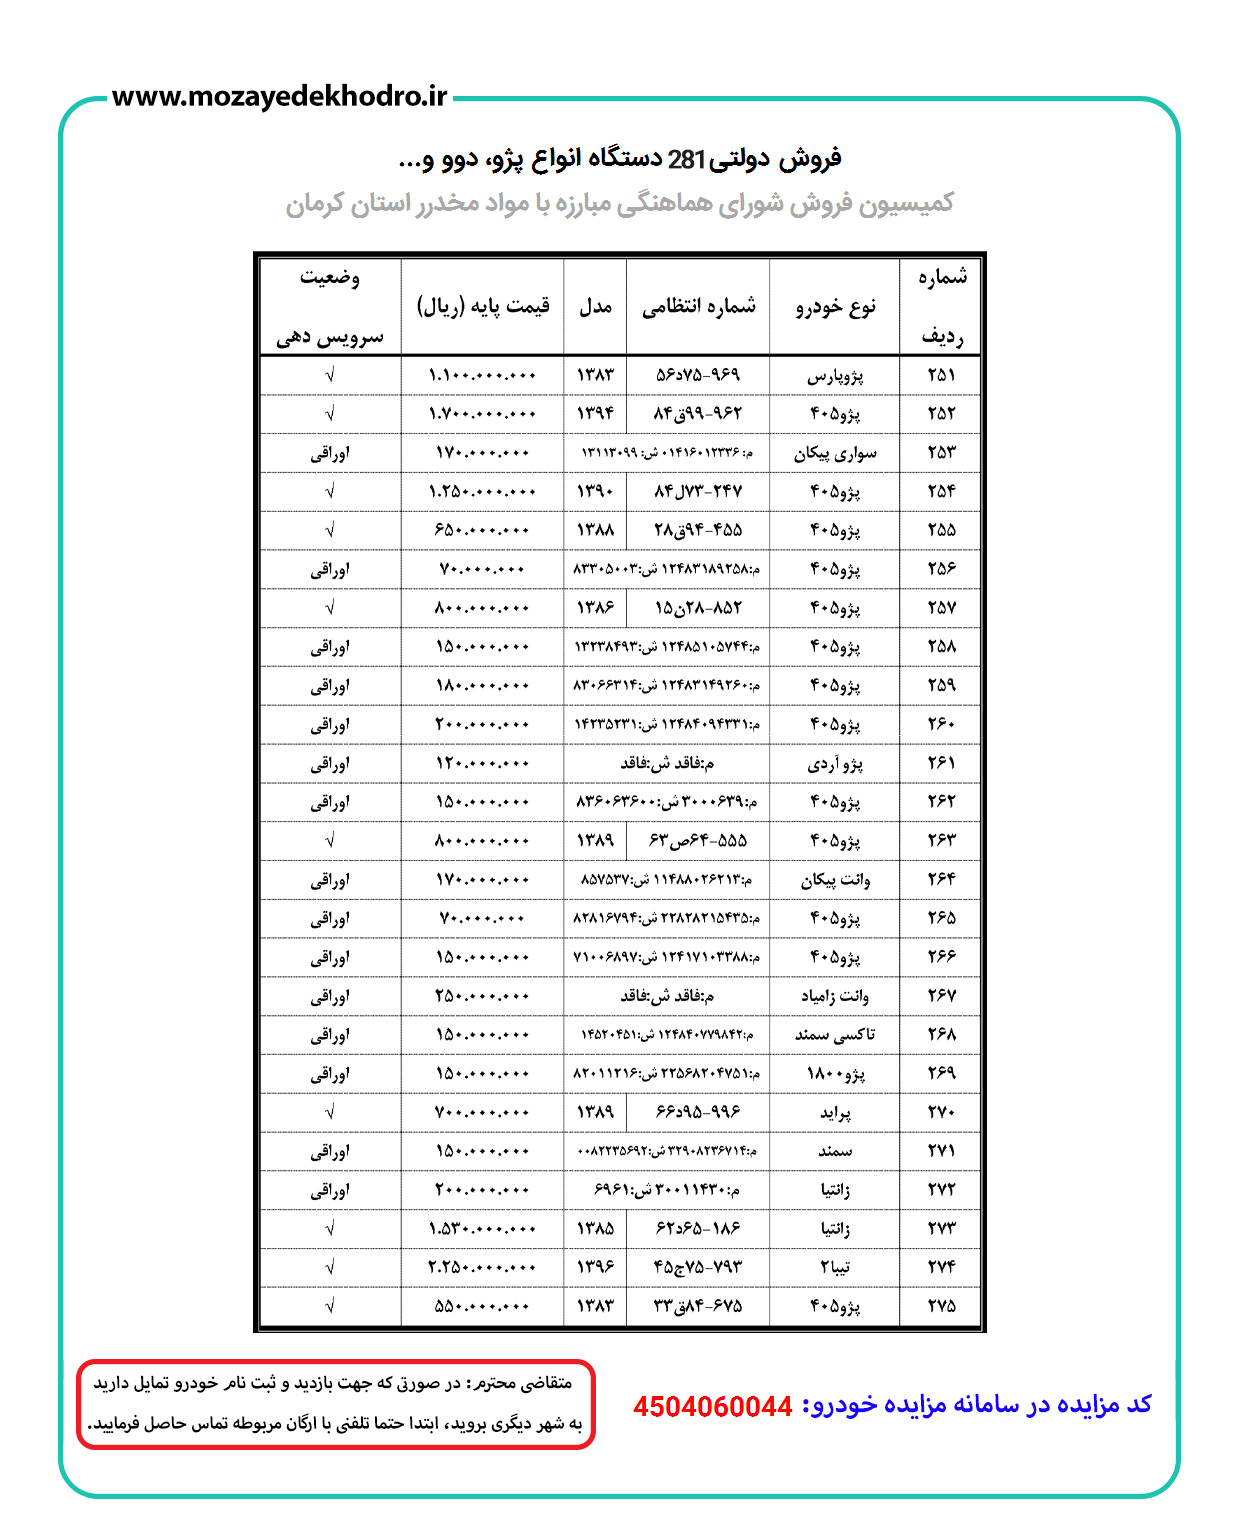 www.mozayedekhodro.ir
فروش دولتی 281 دستگاه انواع پژو، دوو و...
کمیسیون فروش شورای هماهنگی مبارزه با مواد مخدرر استان کرمان
شماره ردیف نوع خودرو شماره انتظامی مدل قیمت پایه (ریال) وضعیت سرویس دهی
۲۵۱ پژوپارس ۹۶۹-۷۵د۵۶ ۱۳۸۳ ۱.۱۰۰.۰۰۰.۰۰۰ √
۲۵۲ پژو۴۰۵ ۹۶۲-۹۹ق۸۴ ۱۳۹۴ ۱.۷۰۰.۰۰۰.۰۰۰ √
۲۵۳ سواری پیکان م: ۰۱۴۱۶۰۱۲۳۳۶ ش: ۱۳۱۱۳۰۹۹ ۱۷۰.۰۰۰.۰۰۰ اوراقی
۲۵۴ پژو۴۰۵ ۲۴۷-۷۳ل۸۴ ۱۳۹۰ ۱.۲۵۰.۰۰۰.۰۰۰ √
۲۵۵ پژو۴۰۵ ۴۵۵-۹۴ق۲۸ ۱۳۸۸ ۶۵۰.۰۰۰.۰۰۰ √
۲۵۶ پژو۴۰۵ م:۱۲۴۸۳۱۸۹۲۵۸ ش:۸۳۳۰۵۰۰۳ ۷۰.۰۰۰.۰۰۰ اوراقی
۲۵۷ پژو۴۰۵ ۸۵۲-۲۸ن۱۵ ۱۳۸۶ ۸۰۰.۰۰۰.۰۰۰ √
۲۵۸ پژو۴۰۵ م:۱۲۴۸۵۱۰۵۷۴۴ ش:۱۳۲۳۸۴۹۳ ۱۵۰.۰۰۰.۰۰۰ اوراقی
۲۵۹ پژو۴۰۵ م:۱۲۴۸۳۱۴۹۲۶۰ ش:۸۳۰۶۶۳۱۴ ۱۸۰.۰۰۰.۰۰۰ اوراقی
۲۶۰ پژو۴۰۵ م:۱۲۴۸۴۰۹۴۳۳۱ ش:۱۴۲۳۵۲۳۱ ۲۰۰.۰۰۰.۰۰۰ اوراقی
۲۶۱ پژو آردی م:فاقد ش:فاقد ۱۲۰.۰۰۰.۰۰۰ اوراقی
۲۶۲ پژو۴۰۵ م:۳۰۰۰۶۳۹ ش:۸۳۶۰۶۳۶۰۰ ۱۵۰.۰۰۰.۰۰۰ اوراقی
۲۶۳ پژو۴۰۵ ۵۵۵-۶۴ص۶۳ ۱۳۸۹ ۸۰۰.۰۰۰.۰۰۰ √
۲۶۴ وانت پیکان م:۱۱۴۸۸۰۲۶۲۱۳ ش:۸۵۷۵۳۷ ۱۷۰.۰۰۰.۰۰۰ اوراقی
۲۶۵ پژو۴۰۵ م:۲۲۸۲۸۲۱۵۴۳۵ ش:۸۲۸۱۶۷۹۴ ۷۰.۰۰۰.۰۰۰ اوراقی
۲۶۶ پژو۴۰۵ م:۱۲۴۱۷۱۰۳۳۸۸ ش:۷۱۰۰۶۸۹۷ ۱۵۰.۰۰۰.۰۰۰ اوراقی
۲۶۷ وانت زامیاد م:فاقد ش:فاقد ۲۵۰.۰۰۰.۰۰۰ اوراقی
۲۶۸ تاکسی سمند م:۱۲۴۸۴۰۷۷۹۸۴۲ ش:۱۴۵۲۰۴۵۱ ۱۵۰.۰۰۰.۰۰۰ اوراقی
۲۶۹ پژو۱۸۰۰ م:۲۲۵۶۸۲۰۴۷۵۱ ش:۸۲۰۱۱۲۱۶ ۱۵۰.۰۰۰.۰۰۰ اوراقی
۲۷۰ پراید ۹۹۶-۹۵د۶۶ ۱۳۸۹ ۷۰۰.۰۰۰.۰۰۰ √
۲۷۱ سمند م:۳۲۹۰۸۲۳۶۷۱۴ ش:۰۰۸۲۲۳۵۶۹۲ ۱۵۰.۰۰۰.۰۰۰ اوراقی
۲۷۲ زانتیا م:۳۰۰۱۱۴۳۰ ش:۶۹۶۱ ۲۰۰.۰۰۰.۰۰۰ اوراقی
۲۷۳ زانتیا ۱۸۶-۶۵د۶۲ ۱۳۸۵ ۱.۵۳۰.۰۰۰.۰۰۰ √
۲۷۴ تیبا۲ ۷۹۳-۷۵ج۴۵ ۱۳۹۶ ۲.۲۵۰.۰۰۰.۰۰۰ √
۲۷۵ پژو۴۰۵ ۶۷۵-۸۴ق۳۳ ۱۳۸۳ ۵۵۰.۰۰۰.۰۰۰ √
کد مزایده در سامانه مزایده خودرو: 4504060044
متقاضی محترم: در صورتی که جهت بازدید و ثبت نام خودرو تمایل دارید
به شهر دیگری بروید، ابتدا حتما تلفنی با ارگان مربوطه تماس حاصل فرمایید.